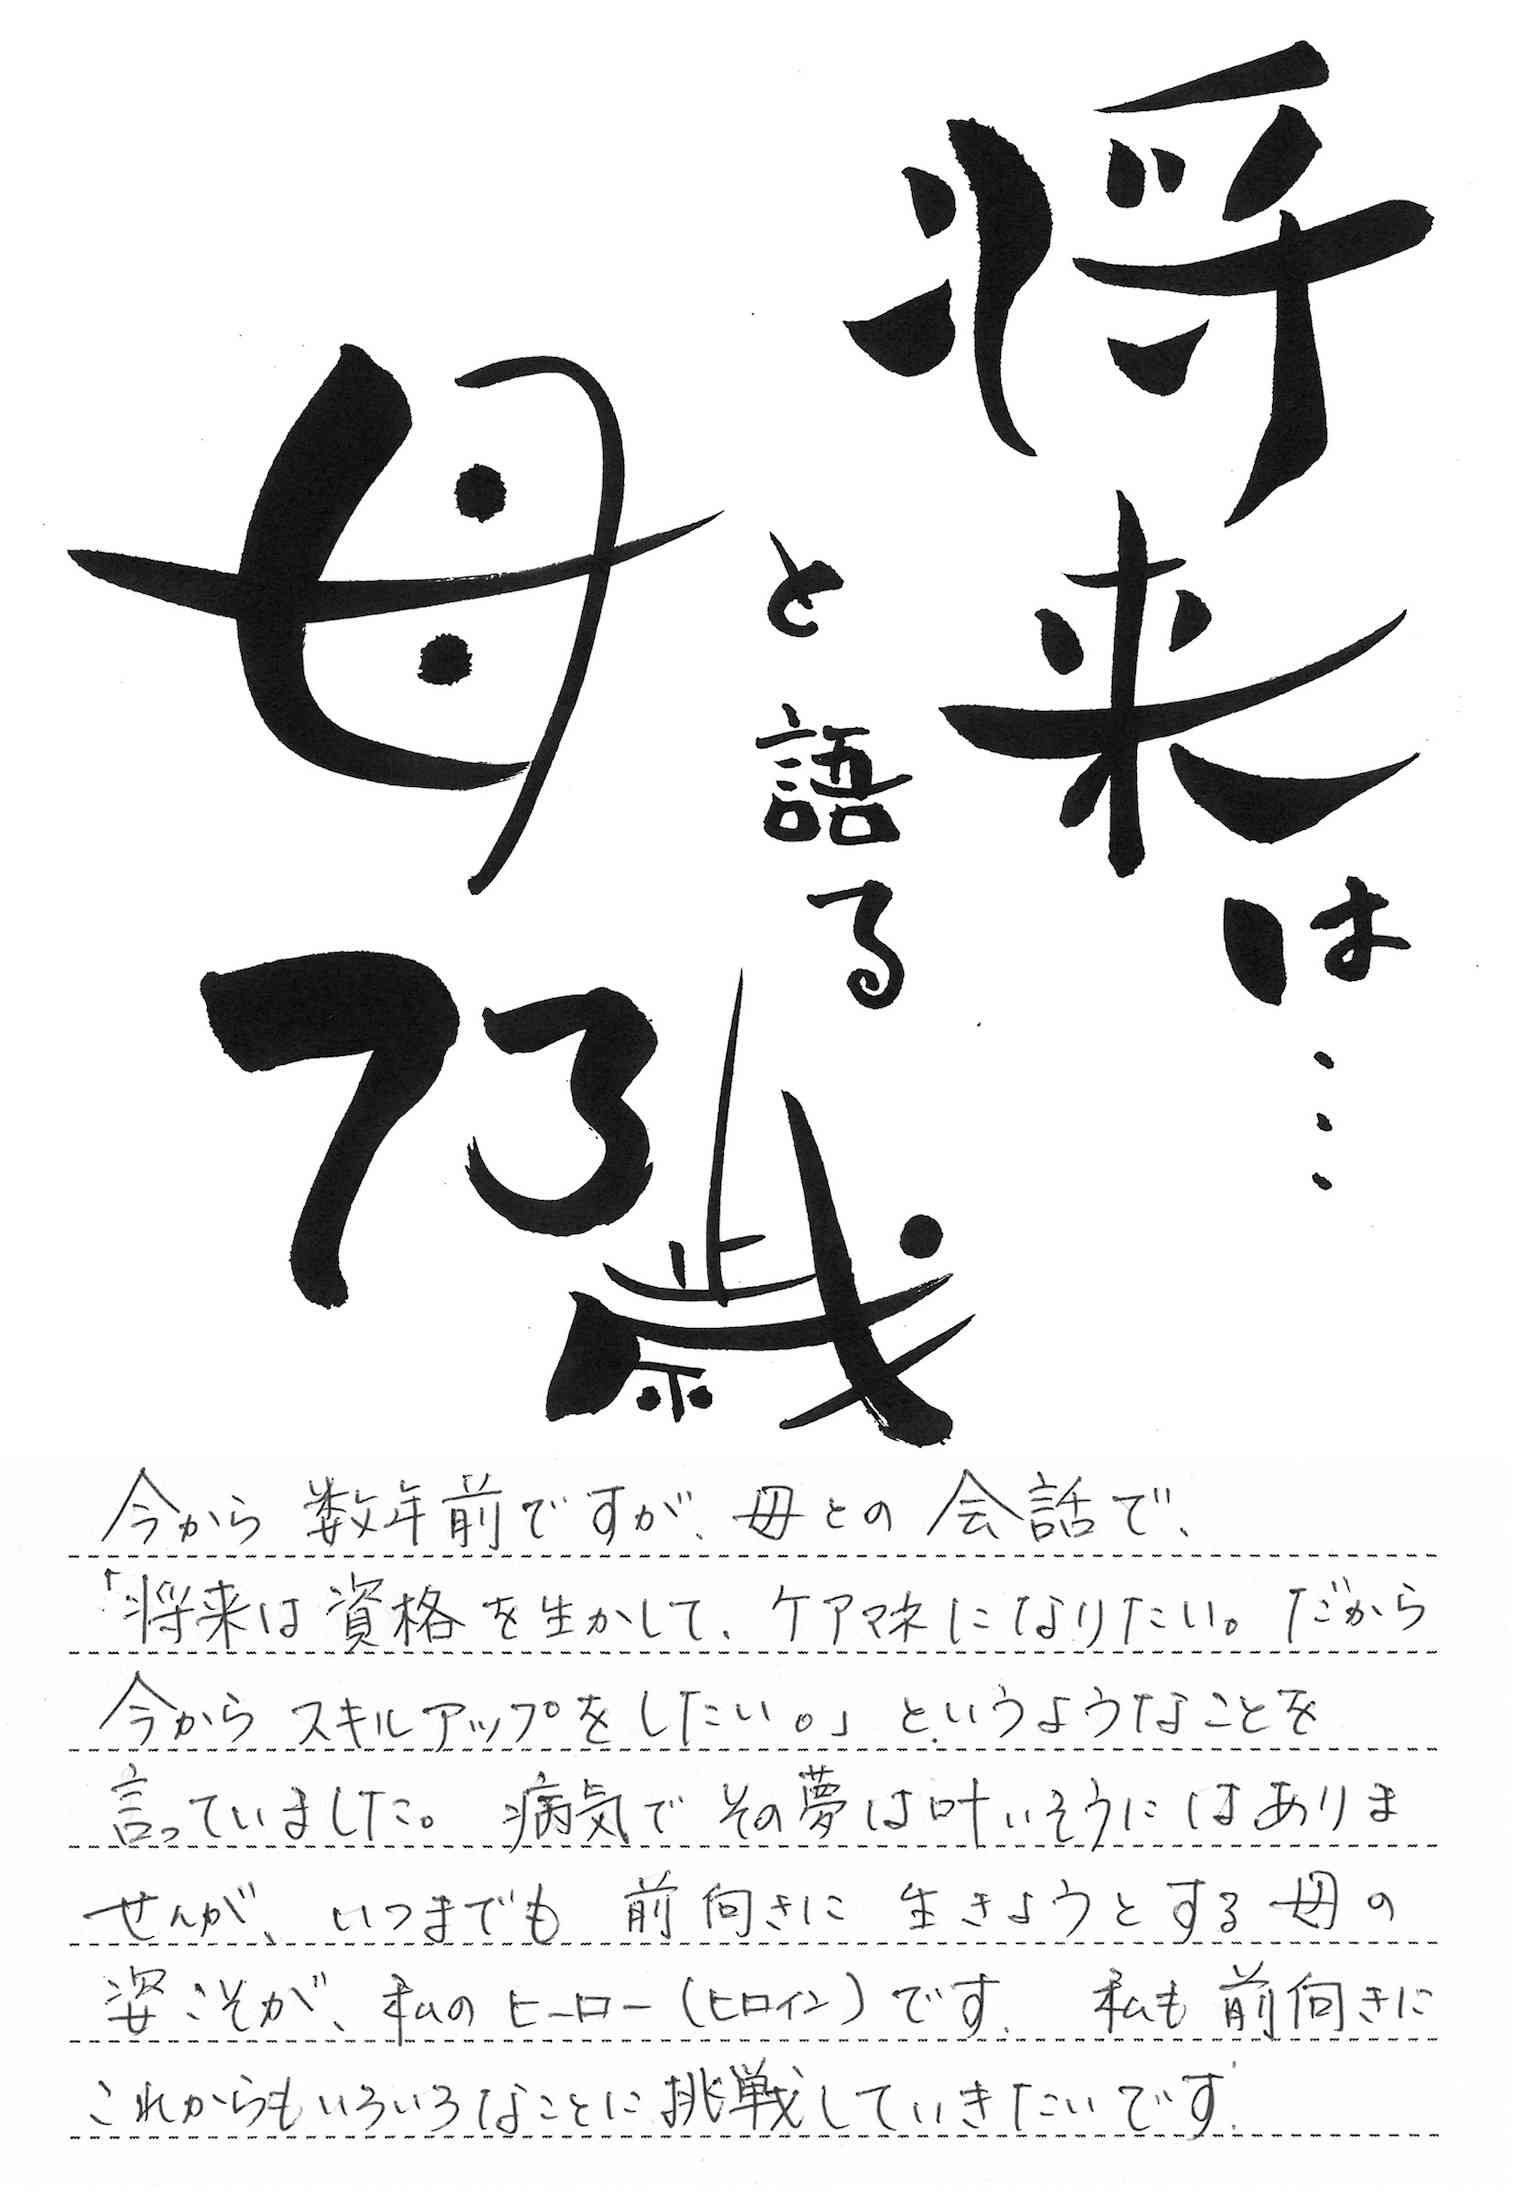 将来は…
と語る
母
73歳
今から数年前ですが、母との会話で、
「将来は資格を生かして、ケアマネになりたい。だから
今からスキルアップをしたい。」というようなことを
言っていました。病気でその夢は叶いそうにはありま
せんが、いつまでも前向きに生きようとする母の
姿こそが、私のヒーロー(ヒロイン)です。私も前向きに
これからもいろいろなことに挑戦していきたいです。